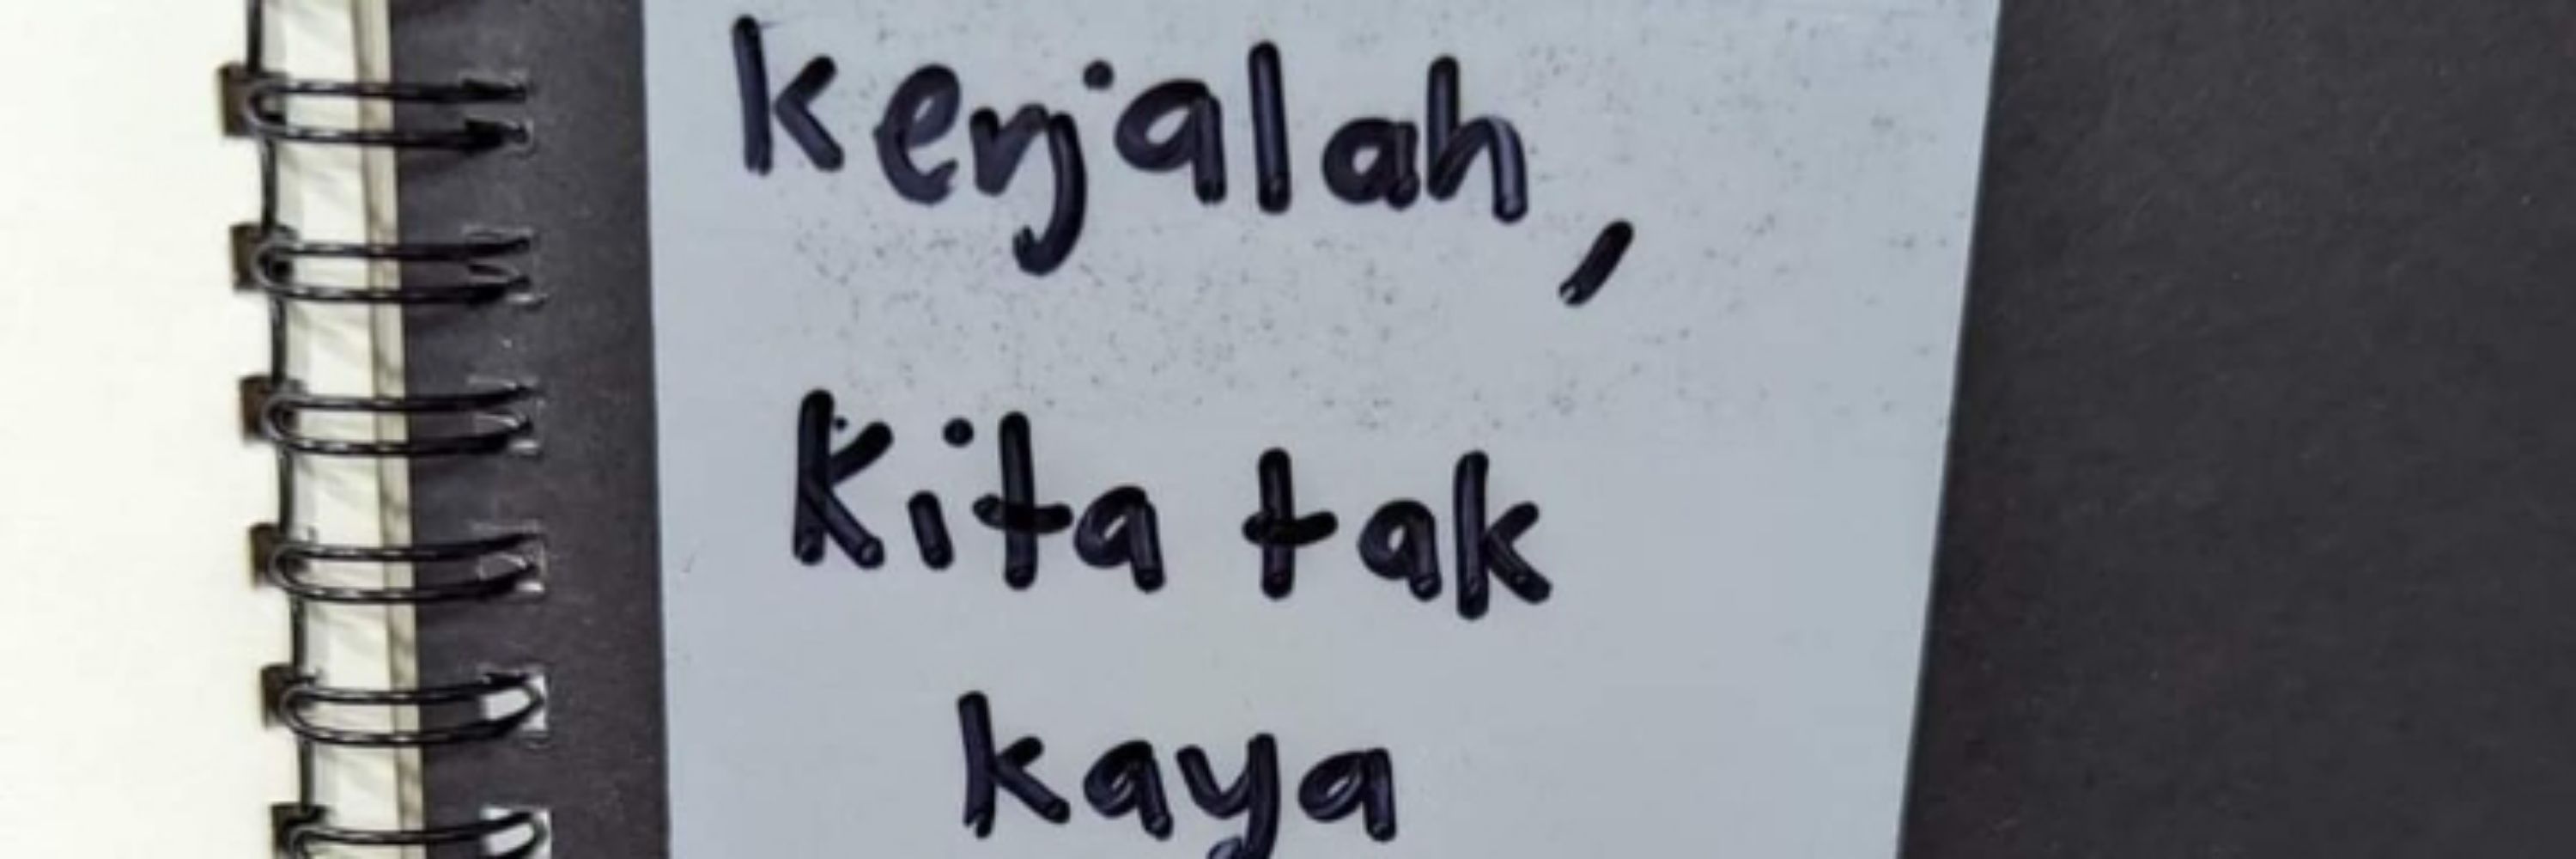 kerjalah,
Kita tak
kaya